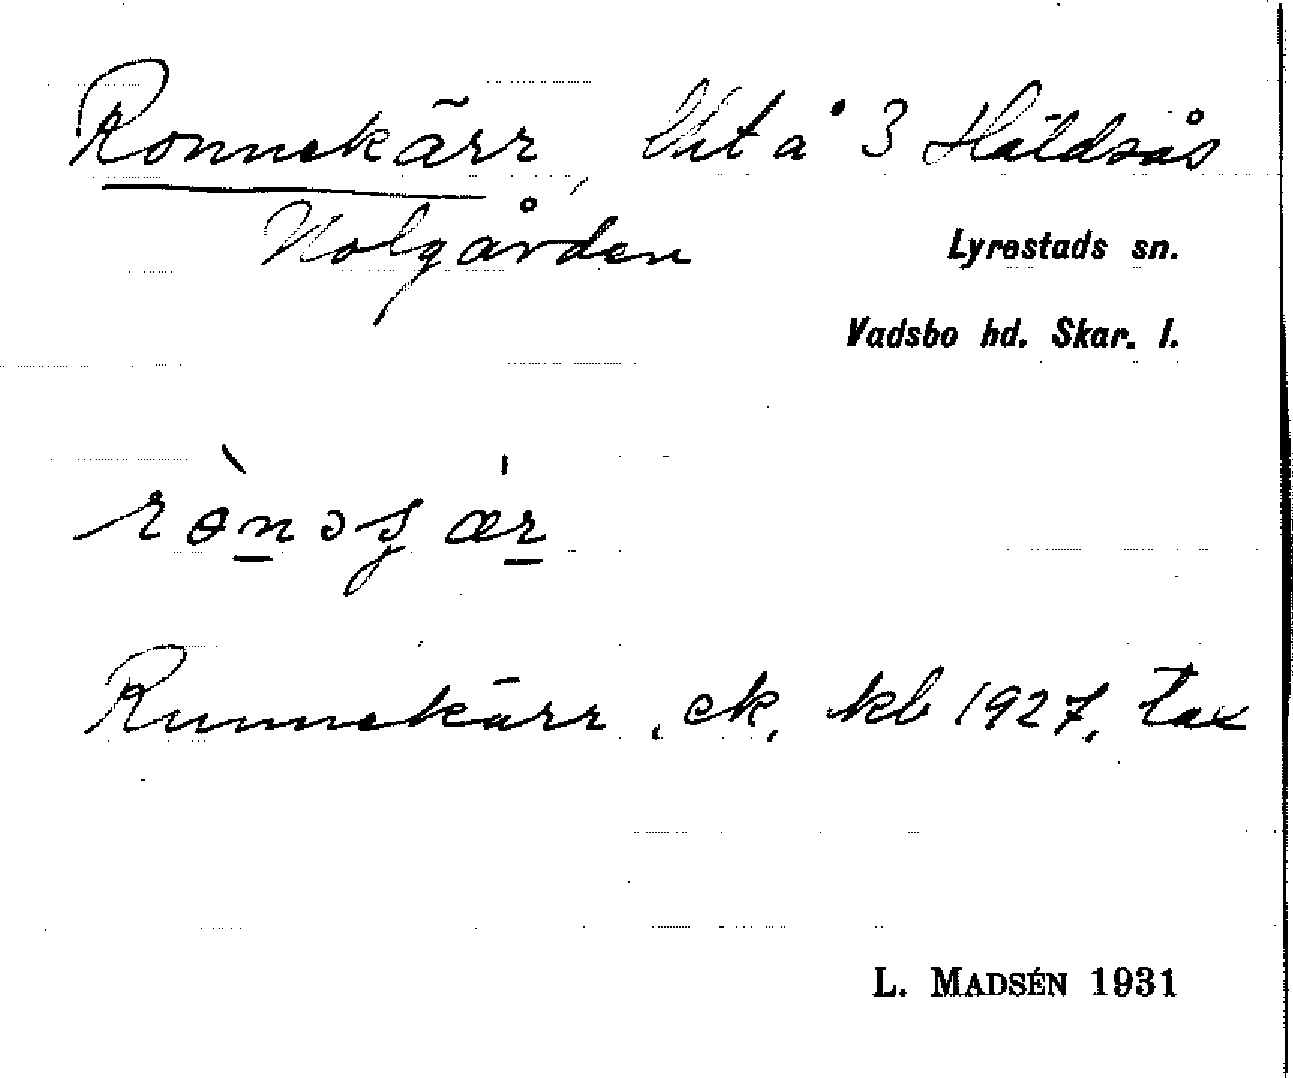 Ronnekärr, Ut å 3 Häldsås
Nolgården
Lyrestads sn.
Vadsbo hd. Skar. l.
Runnekärr, ek, kb 1927, tax
L. MADSÉN 1931